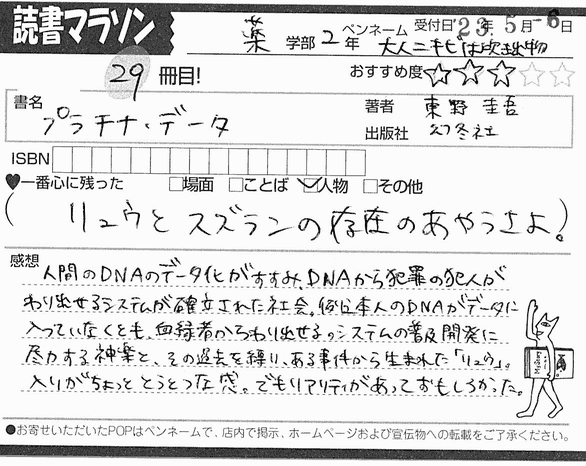 読書マラソン
薬 学部 2 年 ペンネーム 受付日 '23年 5月 -6日
29 冊目! おすすめ度 ☆☆☆☆☆
書名 著者 東野圭吾
プラチナ・データ 出版社 幻冬社
ISBN
♥一番心に残った □場面 □ことば □人物 □その他
( リュウとスズランの存在のあやうさよ! )
感想 人間のDNAのデータ化がすすみ、DNAから犯罪の犯人が
わり出せるシステムが確立された社会。 本人のDNAがデータに
入っていなくとも、血縁者からわり出せる。システムの普及開発に
尽力する神楽と、その過去を 、ある事件から生まれた「リュウ」。
入りがちょっととうとつな感。でもリアリティがあっておもしろかった。
●お寄せいただいたPOPはペンネームで、店内で掲示、ホームページおよび宣伝物への転載をご了承ください。